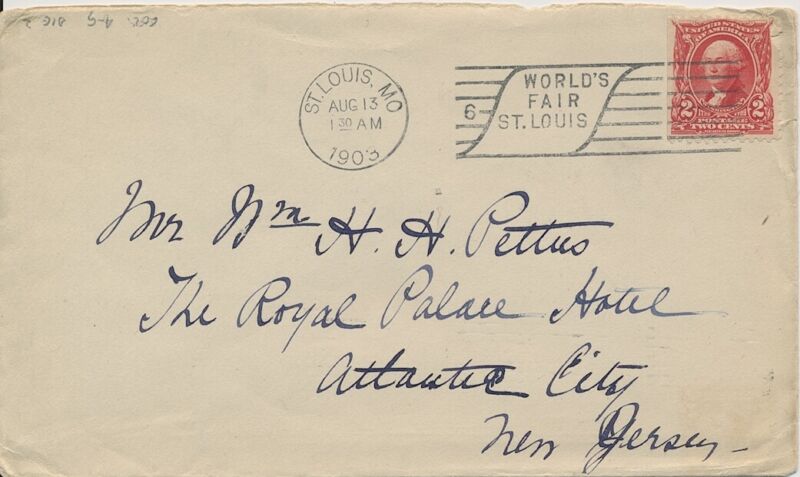 ST. LOUIS, MO
AUG 13
1 30 AM
1903
6
WORLD'S
FAIR
ST. LOUIS
UNITED STATES
OF AMERICA
2 2
POSTAGE
TWO CENTS
Mr Wm H. H. Pettus
The Royal Palace Hotel
Atlantic City
New Jersey